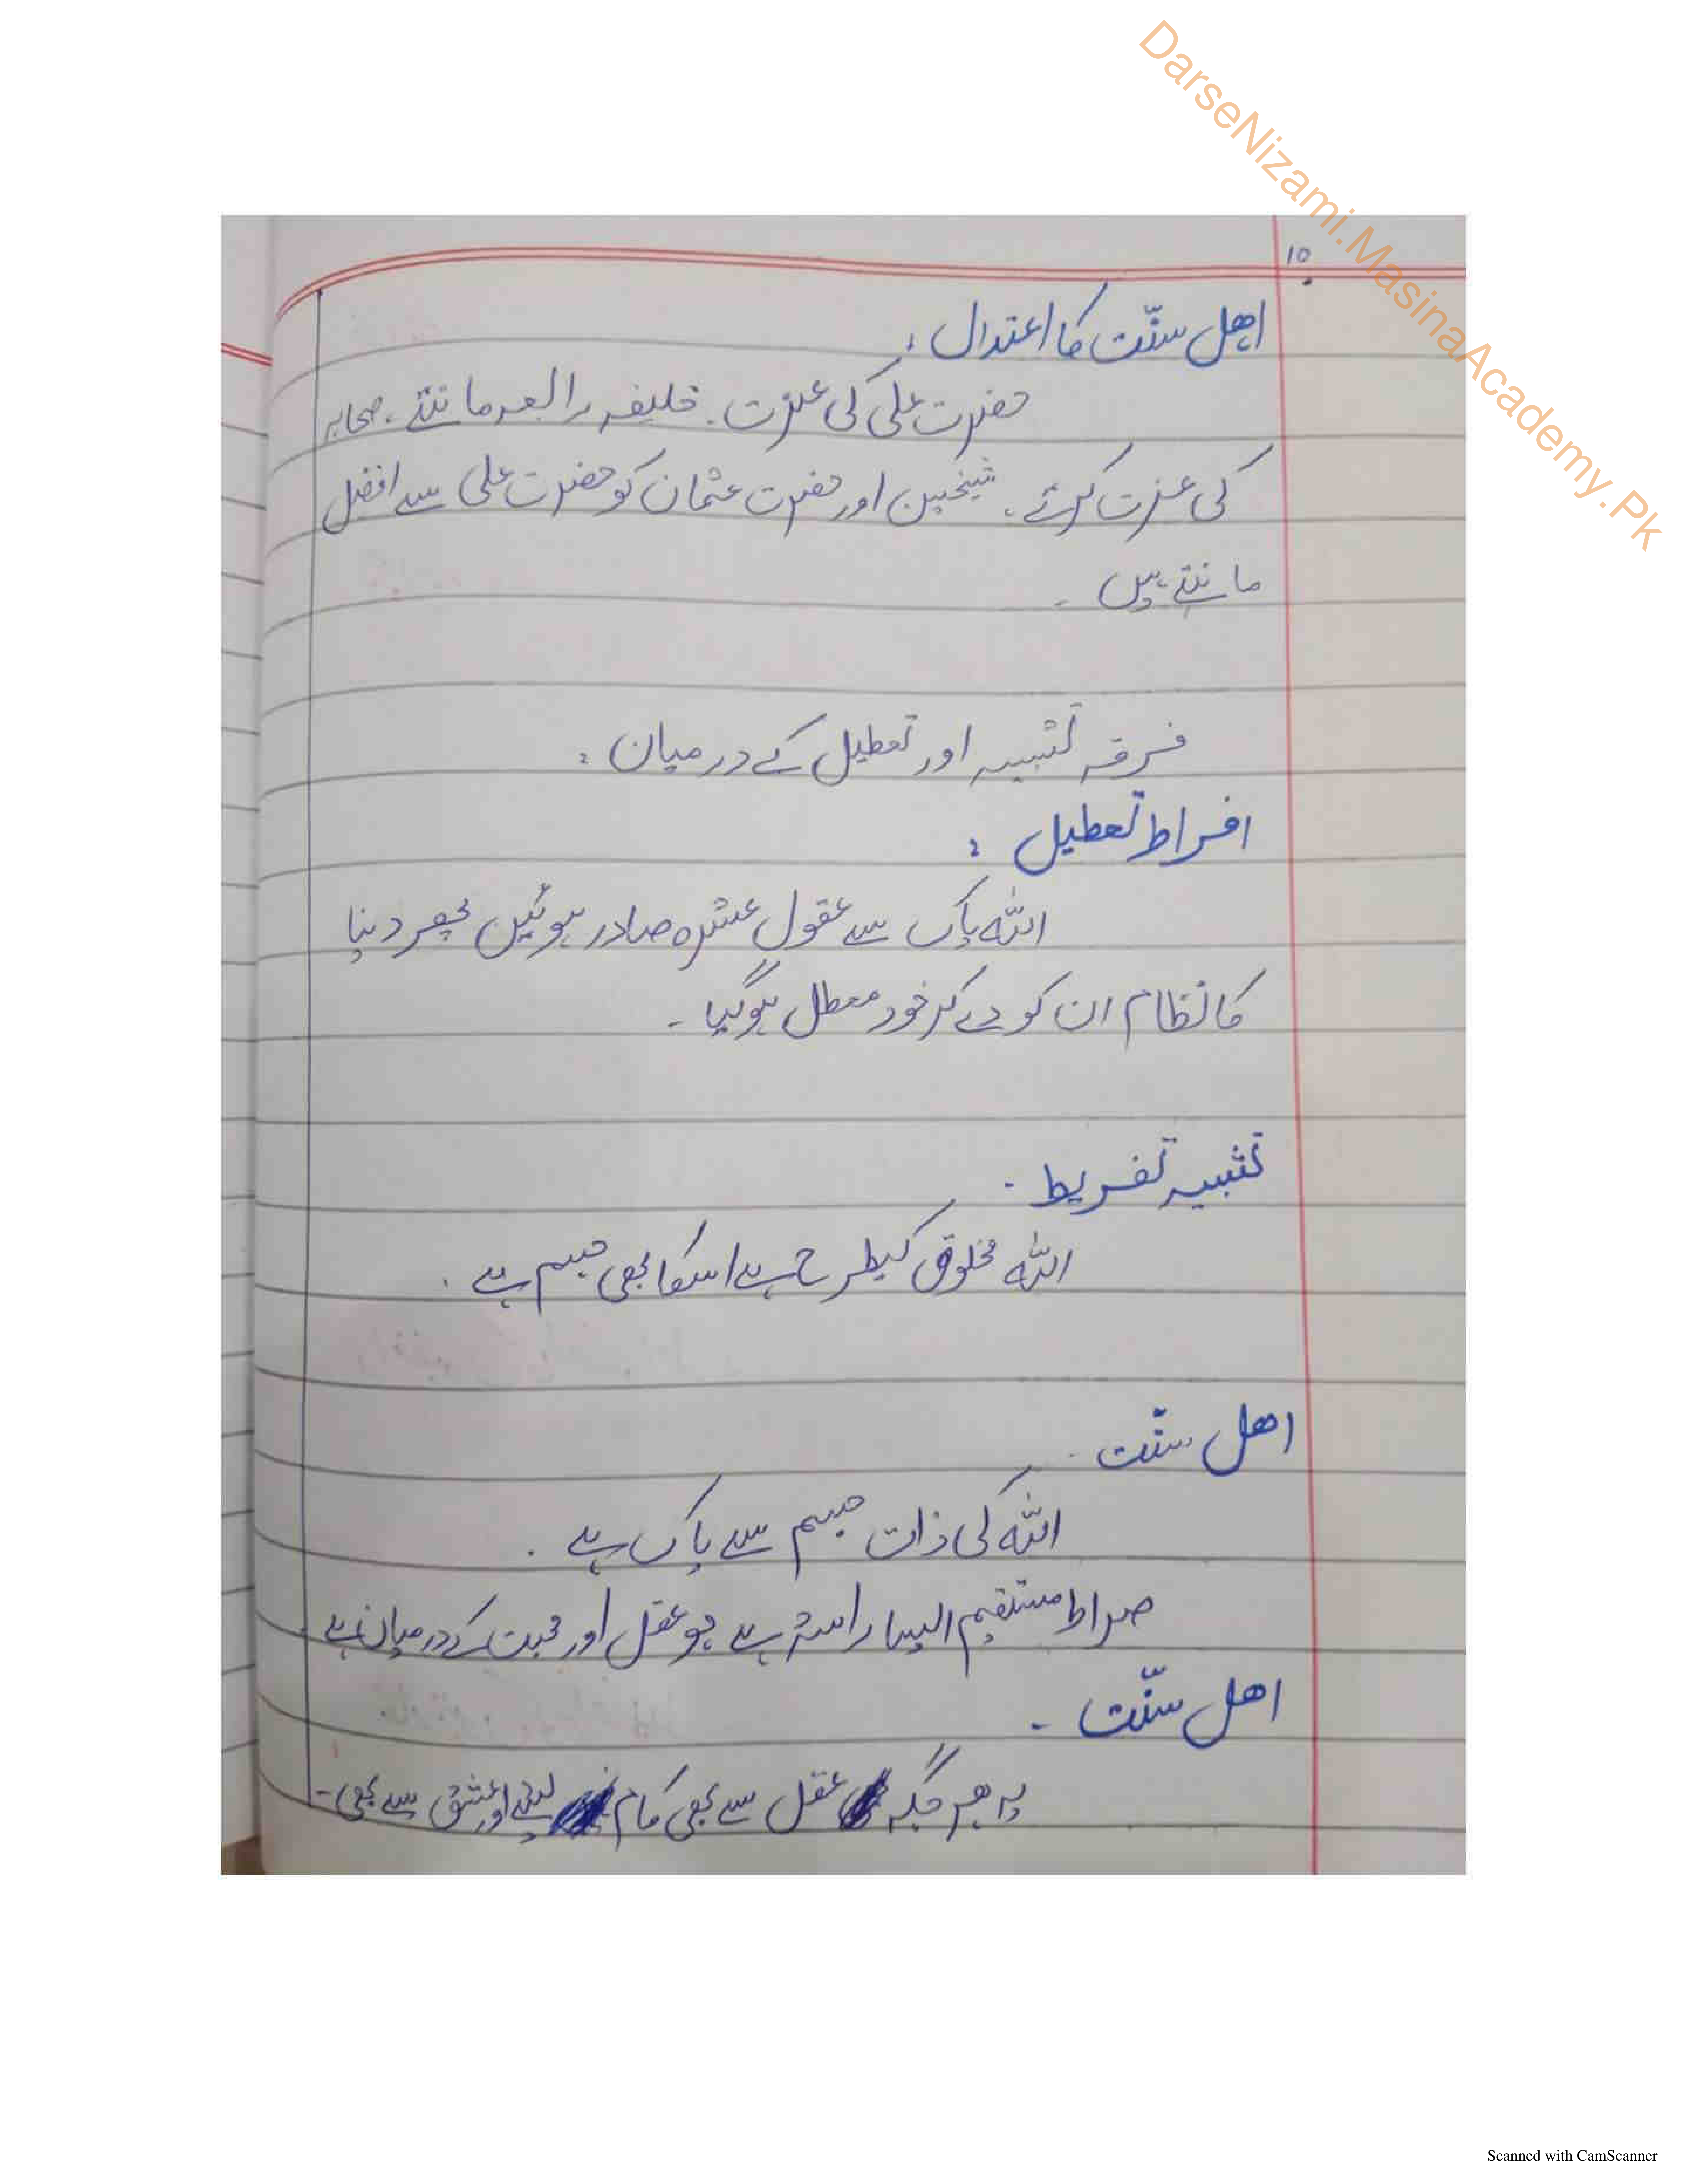 DarseNizami.MasinaAcademy.Pk
10
اھل سنّت کا اعتدال :
حضرت علی کی عزت . خلیفہ رابع مانتے ، صحابہ
کی عزت کرتے ، شیخین اور حضرت عثمان کو حضرت علی سے افضل
مانتے ہیں ۔
فرقہ تشبیہ اور تعطیل کے درمیان :
افراط تعطیل :
اللہ پاک سے عقول عشرہ صادر ہوئیں پھر دنیا
کا نظام ان کو دے کر خود معطل ہوگیا ۔
تشبیہ تفریط .
اللہ مخلوق کیطرح ہے اسکا بھی جسم ہے .
اھل سنّت .
اللہ کی ذات جسم سے پاک ہے .
صراط مستقیم ایسا راستہ ہے جو عقل اور محبت کے درمیان ہے
اھل سنّت ۔
یہ ھر جگہ عقل سے بھی کام لیتے اور عشق سے بھی ۔
Scanned with CamScanner